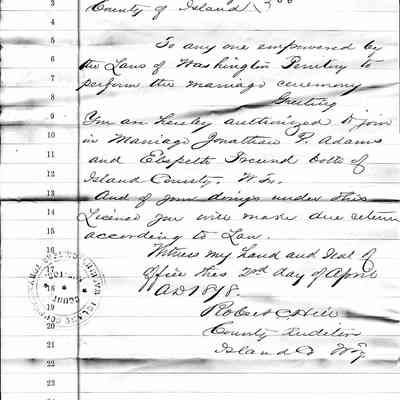 County of Island } ss
To any one empowered by
the Laws of Washington Territory to
perform the marriage ceremony
Greeting
You are hereby authorized to join
in Marriage Jonathan P. Adams
and Elspeth Freund both of
Island County, W. Ty.
And of your doings under this
License you will make due return
according to Law.
Witness my hand and Seal of
Office this 2nd day of April
AD 1878.
Robert C. Hill
County Auditor
Island Co W Ty
3
4
5
6
7
8
9
10
11
12
13
14
15
16
17
18
19
20
21
22
23